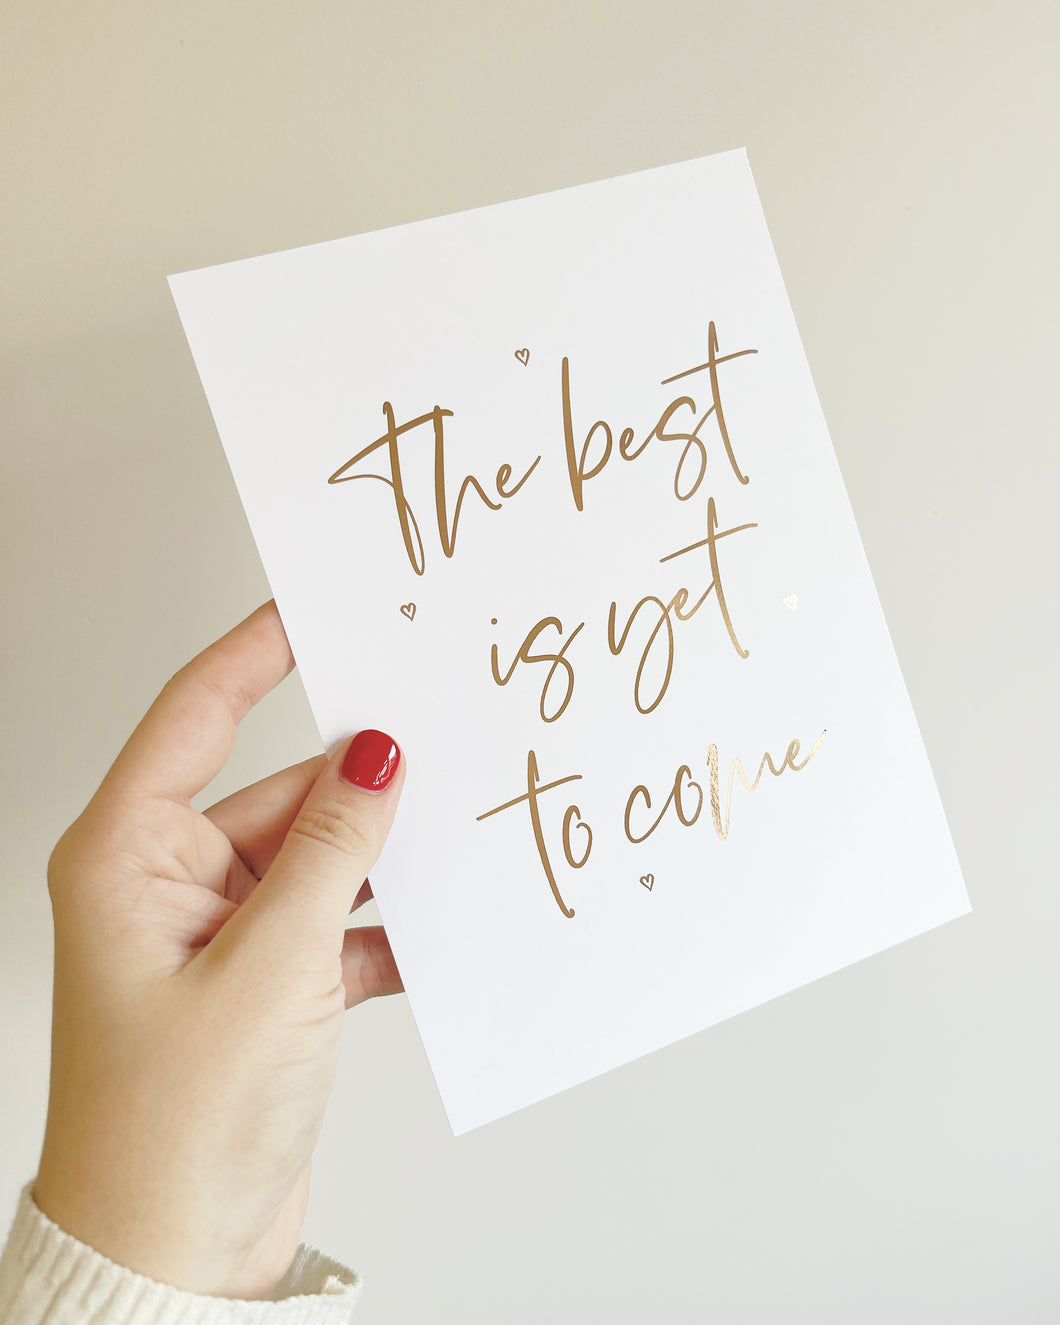 The best
is yet
to come